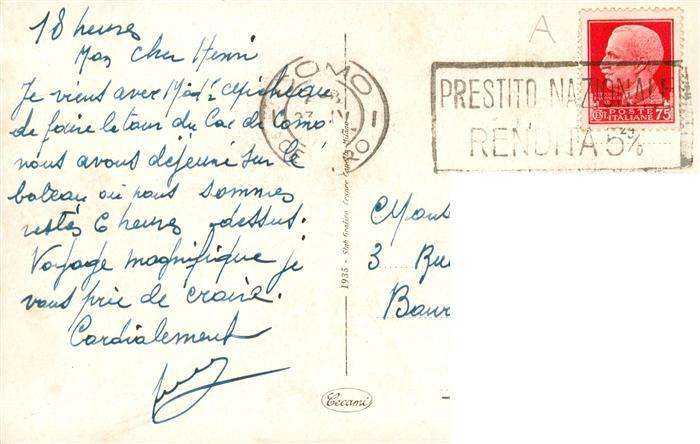 18 heures
Mon Cher Henri
Je viens avec Made Micheneau
de faire le tour du Lac de Como
nous avons dejeuné sur le
bateau où nous sommes
restés 6 heures dessus.
Voyage magnifique je
vous prie de croire.
Cordialement
COMO
PRESTITO NAZIONALE
RENDITA 5%
POSTE
ITALIANE
75
A
3 Rue
1935
Cecami